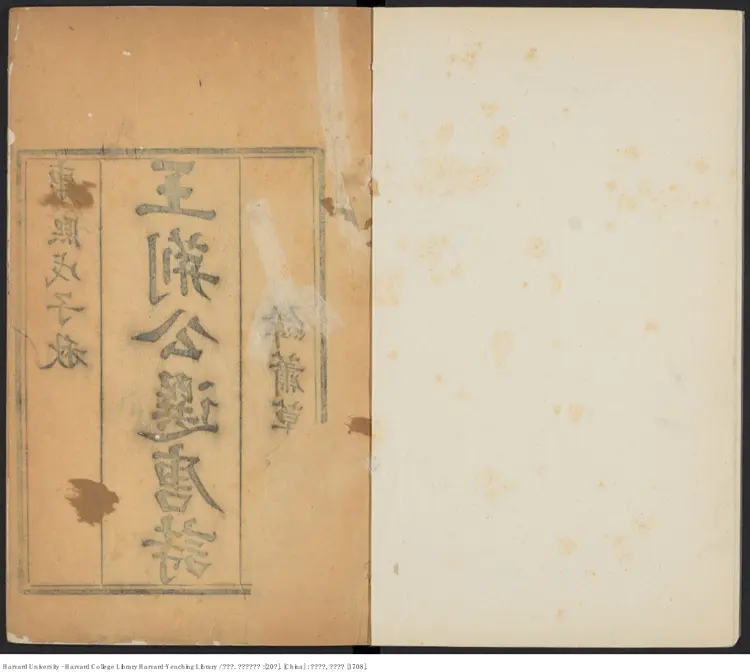 康熙戊子秋
王荆公選唐詩
緯蕭草
Harvard University - Harvard College Library Harvard-Yenching Library / ???. ?????? : [20?]. [China] : ????, ???? [1708].